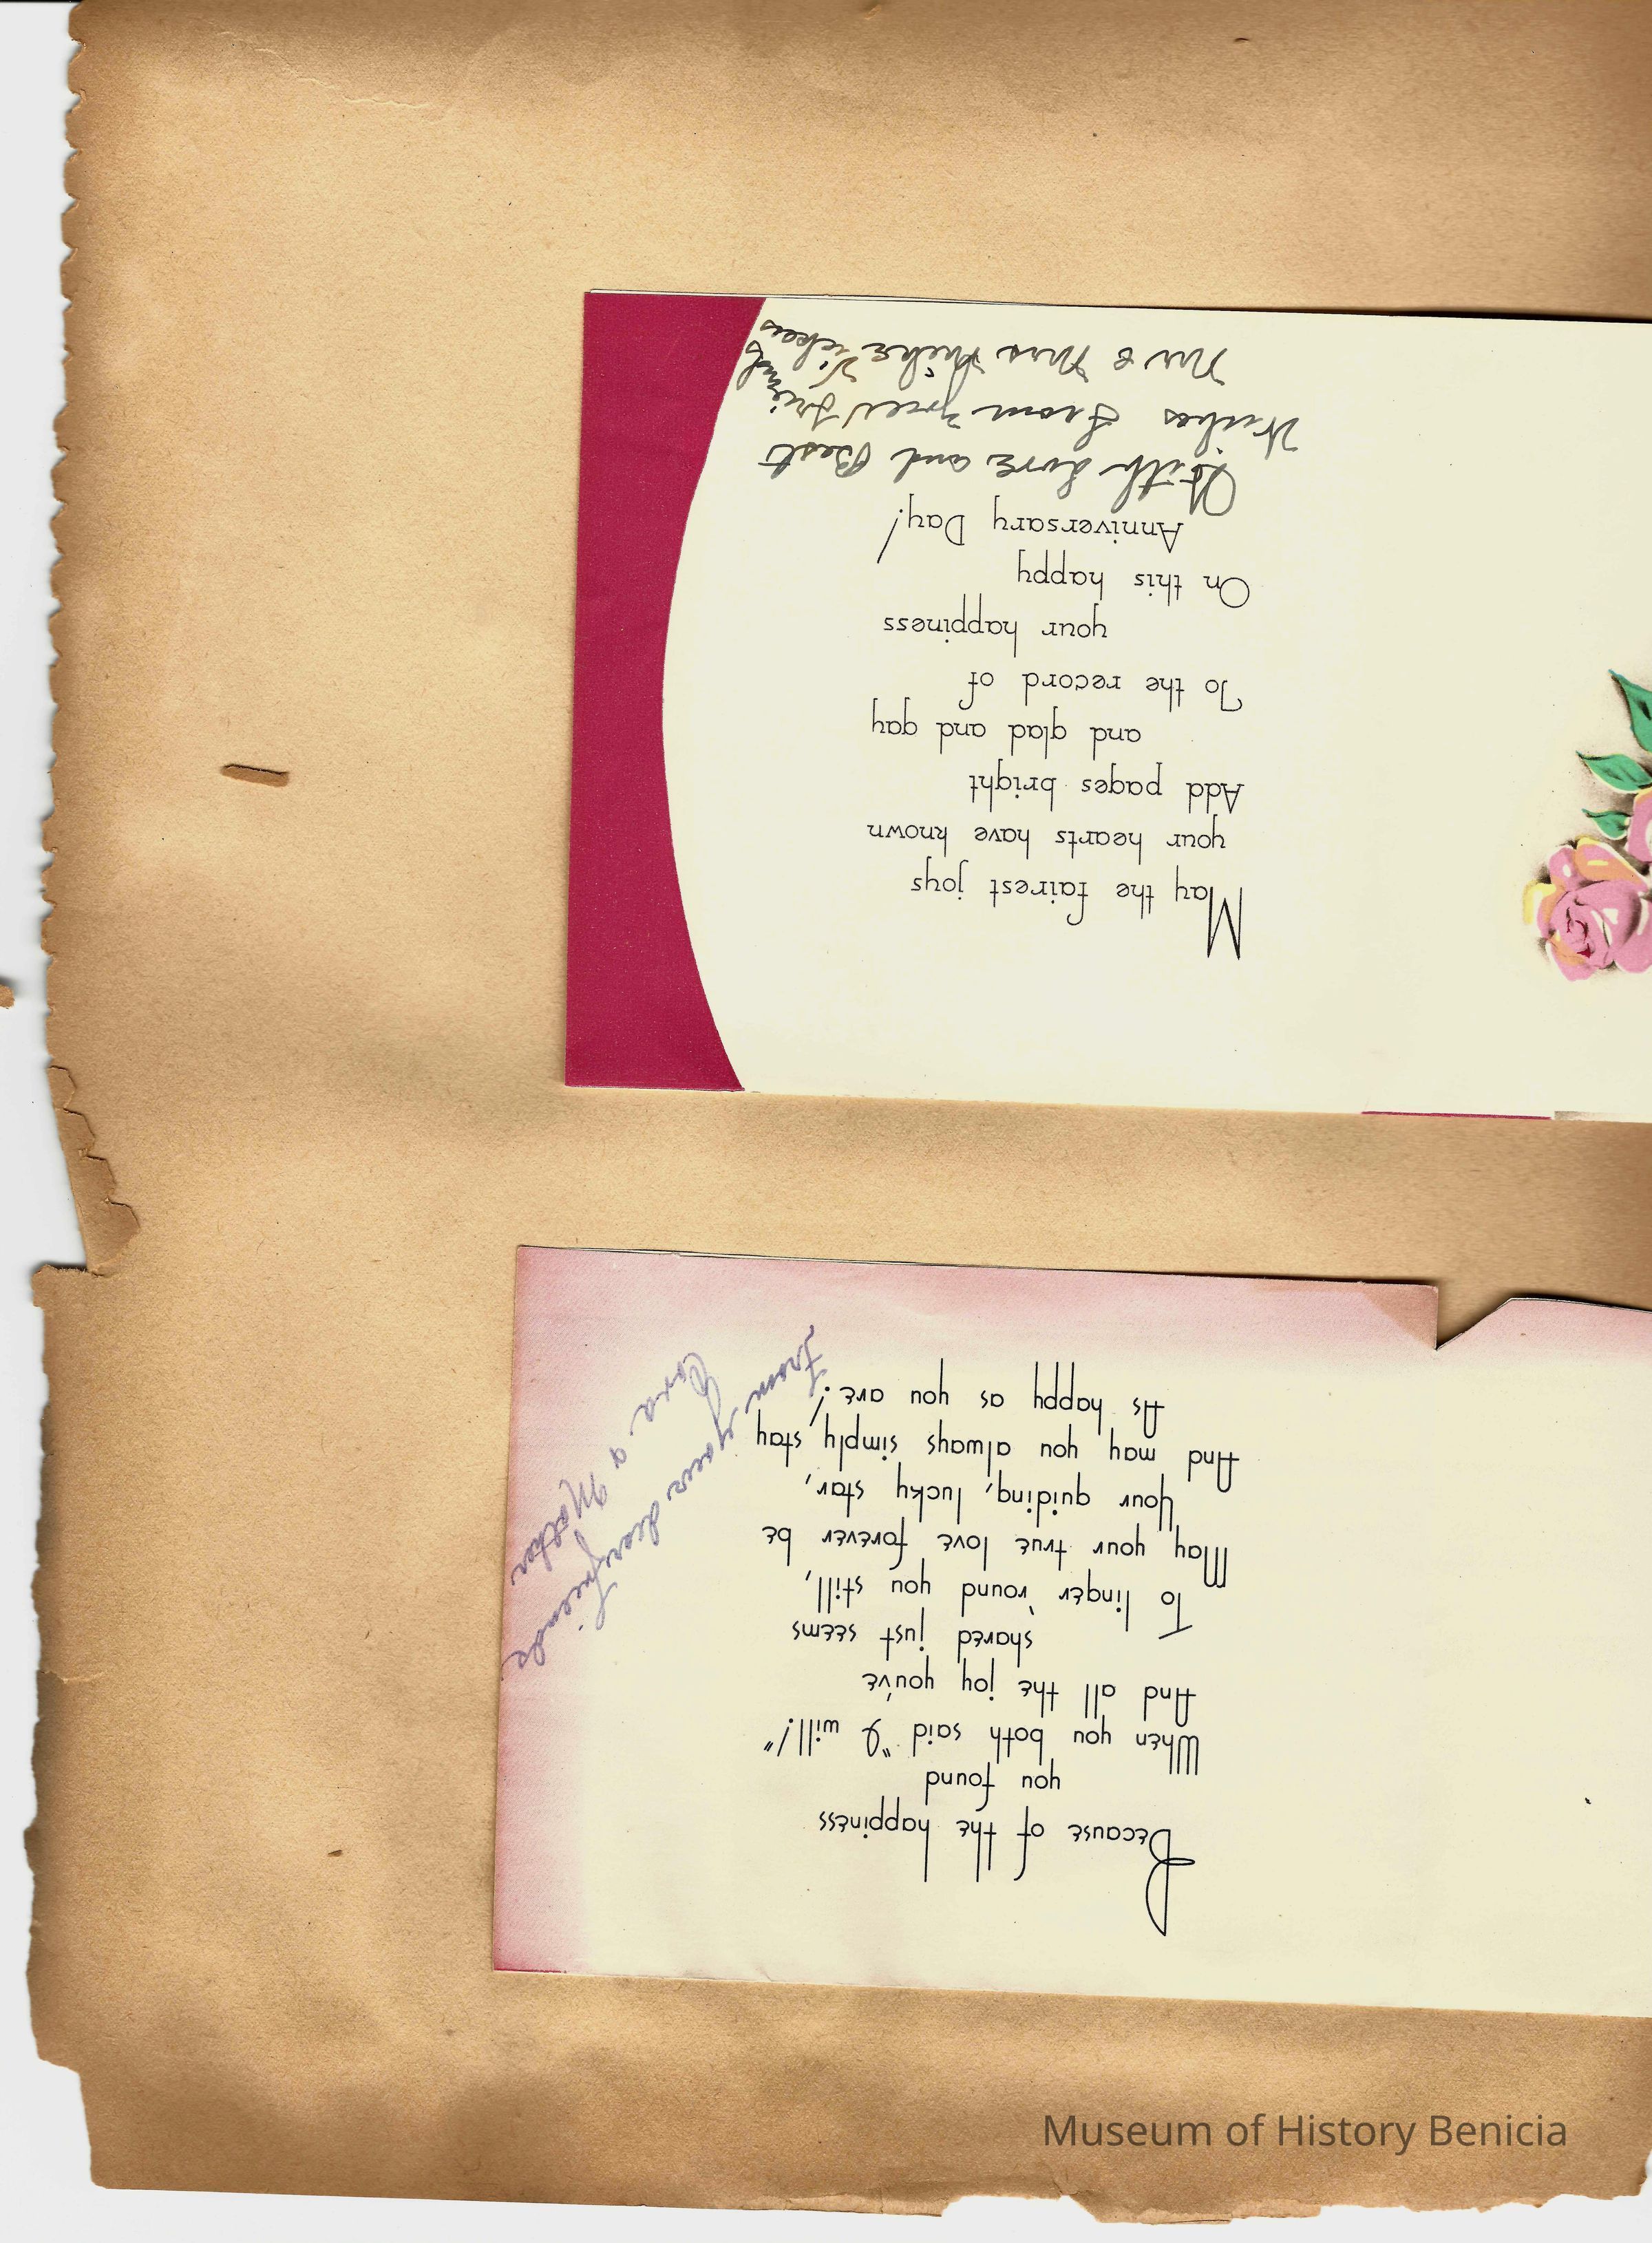 Because of the happiness
you found
When you both said "I will!"
And all the joy you've
shared just seems
To linger 'round you still,
May your true love forever be
Your guiding, lucky star,
And may you always simply stay
As happy as you are!
From your dear friends
Cora & Mother
May the fairest joys
your hearts have known
Add pages bright
and glad and gay
To the record of
your happiness
On this happy
Anniversary Day!
With Love and Best
Wishes From your Friends
Mr & Mrs Mike
Museum of History Benicia